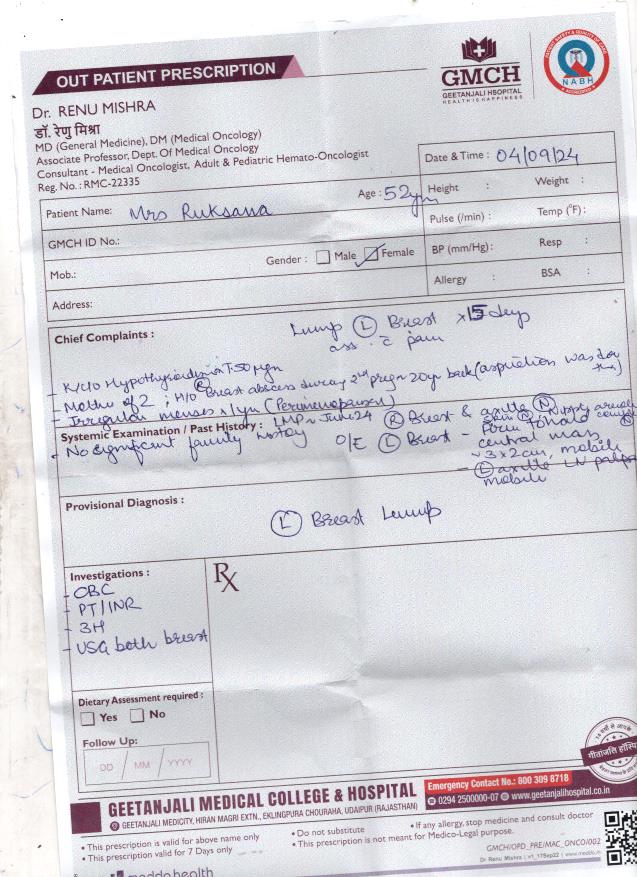 OUT PATIENT PRESCRIPTION
GMCH
GEETANJALI HSOPITAL
HEALTH IS HAPPINESS
PATIENT SAFETY & QUALITY OF CARE
NABH
ACCREDITED
Dr. RENU MISHRA
डॉ. रेणु मिश्रा
MD (General Medicine), DM (Medical Oncology)
Associate Professor, Dept. Of Medical Oncology
Consultant - Medical Oncologist, Adult & Pediatric Hemato-Oncologist
Reg. No. : RMC-22335
Date & Time : 04/09/24
Patient Name: Mrs Ruksana Age : 52yrs
Height : Weight :
GMCH ID No.:
Pulse (/min) : Temp (°F) :
Mob.: Gender : Male Female
BP (mm/Hg) : Resp :
Address:
Allergy : BSA :
Chief Complaints :
Lump (L) Breast x 15 days
ass. c pain
- K/C/O Hypothyroidism T. 50 mgm
- Mother of 2 ; H/O (R) Breast abscess during 2nd pregn 20yr back (aspiration was done
- Irregular menses x 1yr (Perimenopausal)
LMP ~ June 24
Systemic Examination / Past History :
- No significant family history
O/E (R) Breast & axilla (N)
(L) Breast -
central mass
~ 3 x 2 cm, mobile
- (L) axilla LN palp
mobile
Provisional Diagnosis :
(L) Breast Lump
Investigations :
- CBC
- PT/INR
- 3H
- USG both breast
Rx
Dietary Assessment required :
Yes No
Follow Up:
DD / MM / YYYY
GEETANJALI MEDICAL COLLEGE & HOSPITAL
GEETANJALI MEDICITY, HIRAN MAGRI EXTN., EKLINGPURA CHOURAHA, UDAIPUR (RAJASTHAN)
Emergency Contact No.: 800 309 8718
0294 2500000-07 www.geetanjalihospital.co.in
• This prescription is valid for above name only
• This prescription is valid for 7 Days only
• Do not substitute
• This prescription is not meant for Medico-Legal purpose.
• If any allergy, stop medicine and consult doctor
GMCH/OPD_PRE/MAC_ONCO/002
Dr Renu Mishra | v1_17Sep22 | www.meddo.in
meddo health